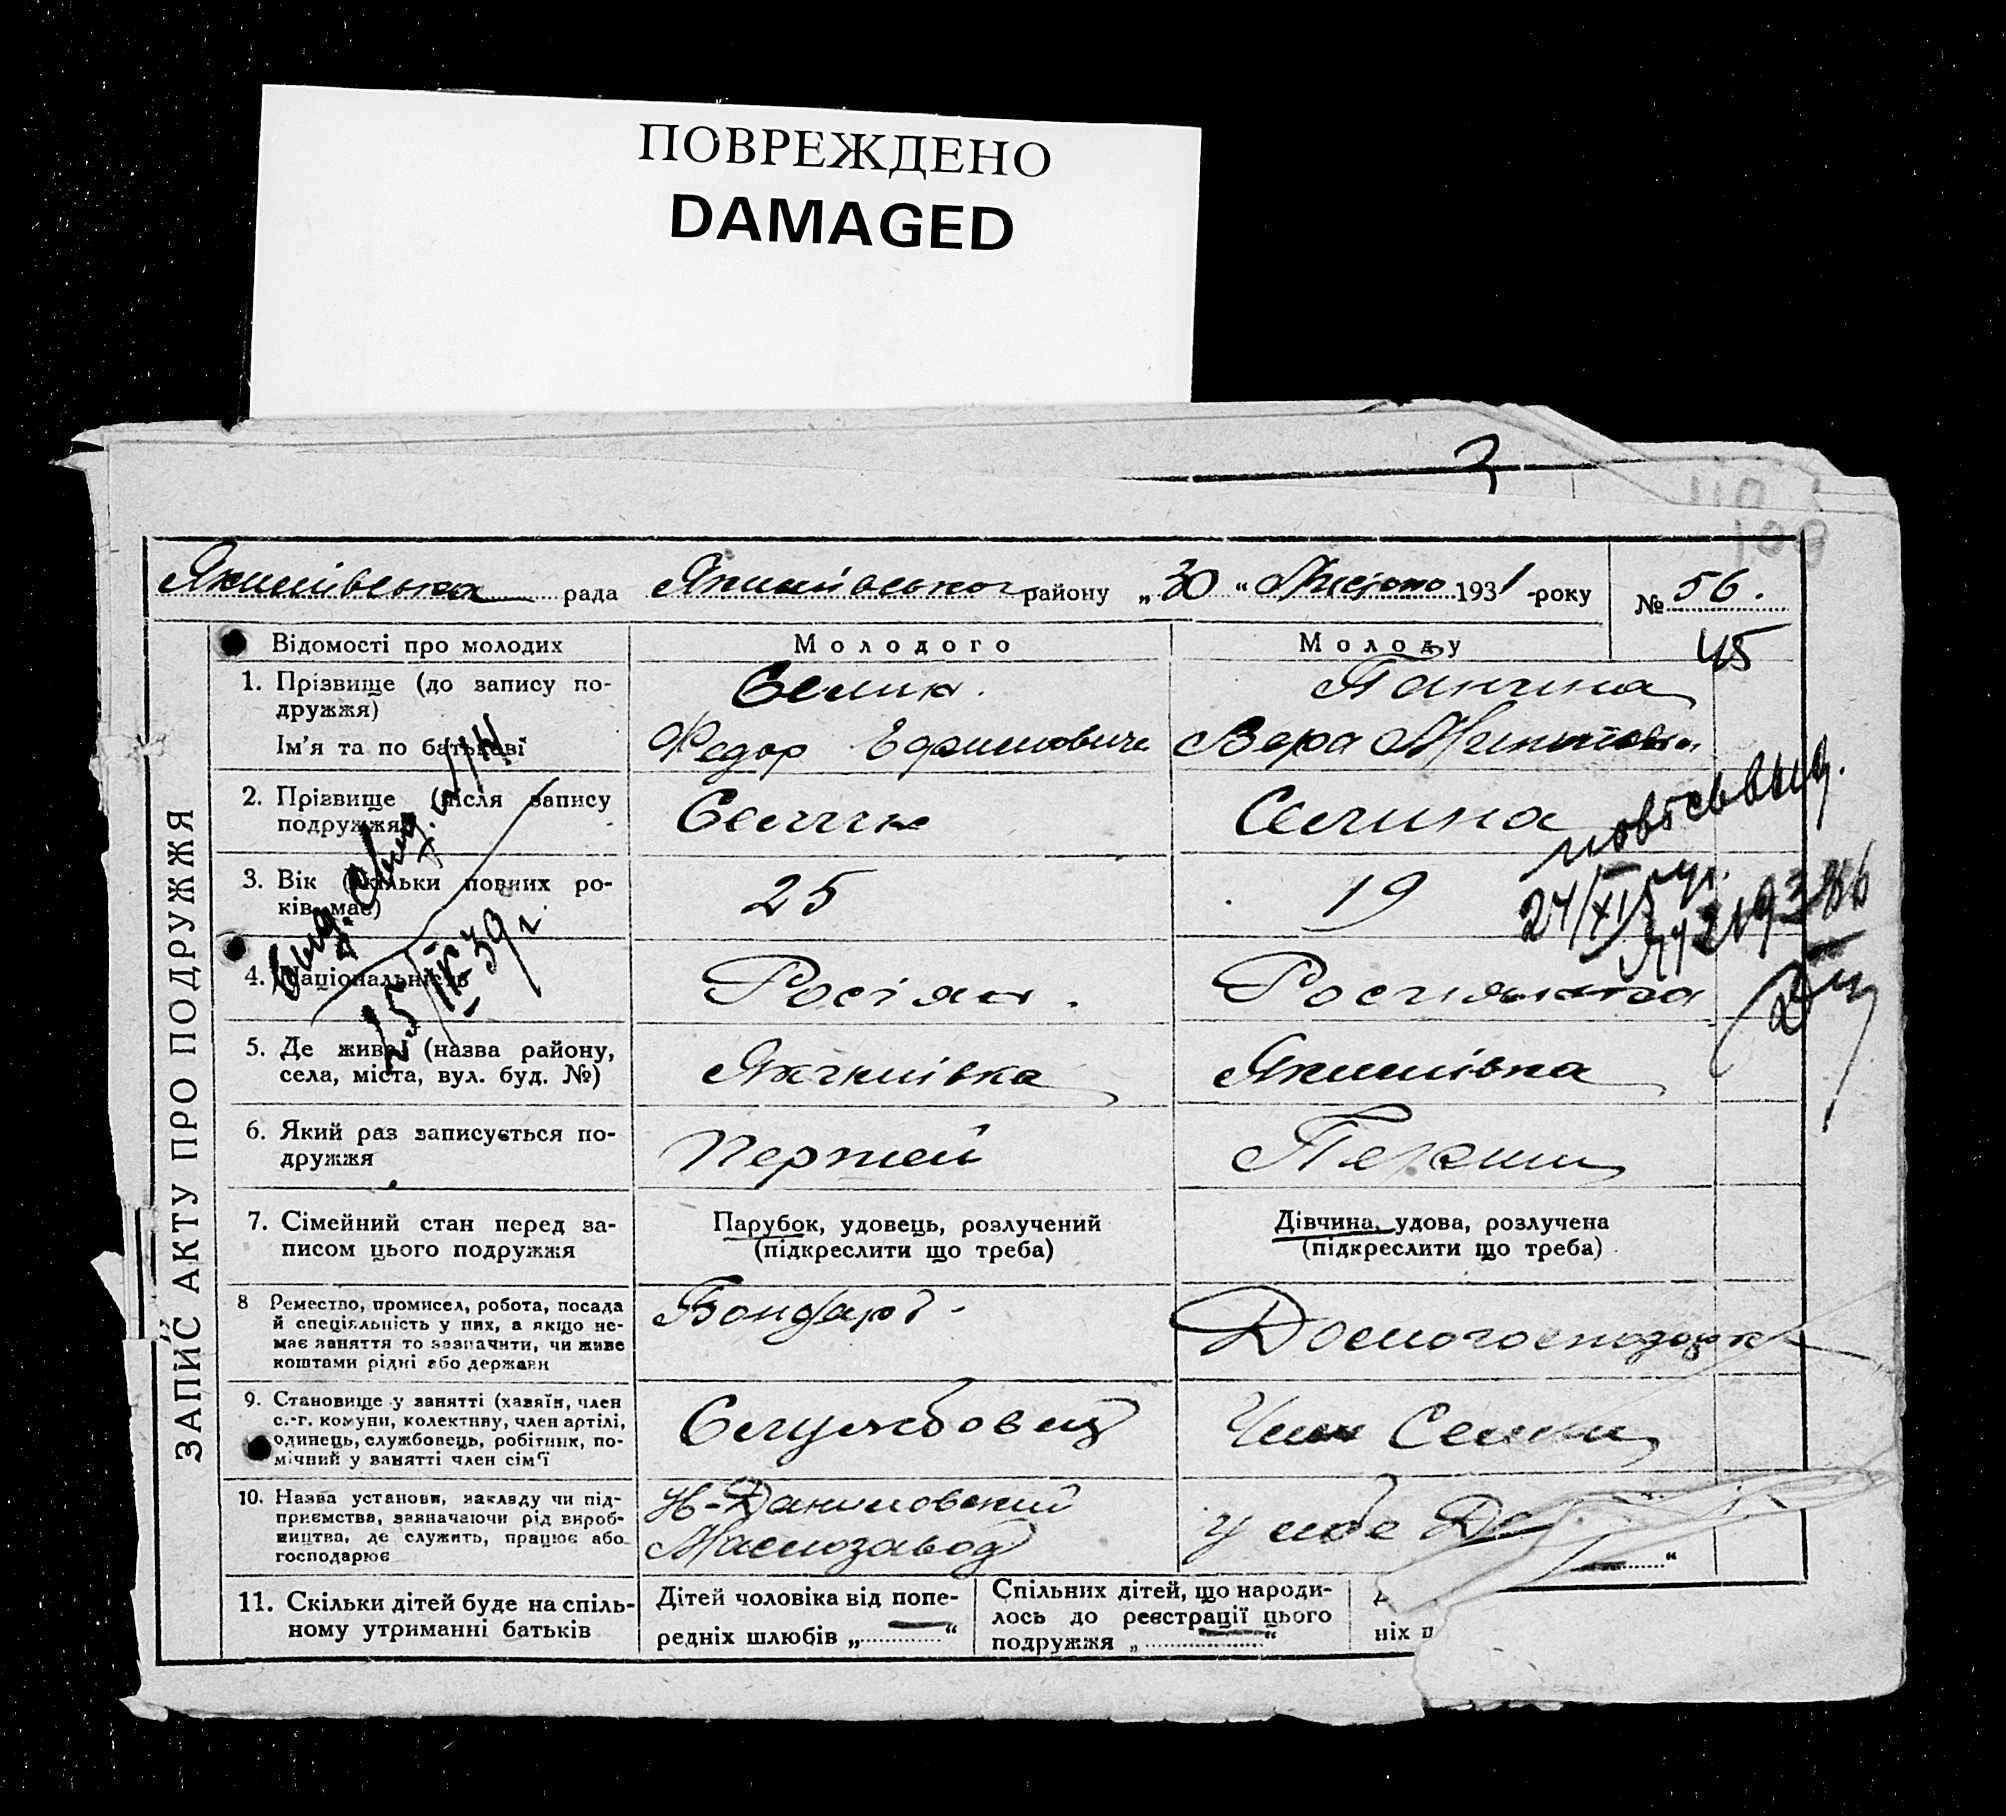 ПОВРЕЖДЕНО
DAMAGED
3
110
108
Якимівська рада Якимівського району „30“ 1931-року № 56.
45
ЗАПИС АКТУ ПРО ПОДРУЖЖЯ
Відомості про молодих Молодого Молоду
1. Прізвище (до запису по-
дружжя)
Селин. Панчина
Ім'я та по батькові
Федор Ефимовичь Вера
2. Прізвище (після запису
подружжя)
Селин Селина
3. Вік (скільки повних ро-
ків має)
25 19
4. Національність
Росіян. Россиянка
5. Де живе (назва району,
села, міста, вул. буд. №)
Якимівка Якимівка
6. Який раз записується по-
дружжя
Первей Перши
7. Сімейний стан перед за-
писом цього подружжя
Парубок, удовець, розлучений
(підкреслити що треба)
Дівчина, удова, розлучена
(підкреслити що треба)
8 Ремество, промисел, робота, посада
й спеціяльність у них, а якщо не-
має заняття то зазначити, чи живе
коштами рідні або держави
Бондарь Домогосподарк
9. Становище у занятті (хазяїн, член
с.-г. комуни, колективу, член артілі,
одинець, службовець, робітник, по-
мічний у занятті член сім'ї
Служbовец Член Семии
10. Назва установи, закладу чи під-
приємства, зазначаючи рід вироб-
ництва, де служить, працює або
господарює
Н-Даниловский
Маслозавод
у себе
11. Скільки дітей буде на спіль-
ному утриманні батьків
Дітей чоловіка від попе-
редніх шлюбів „—“
Спільних дітей, що народи-
лось до реєстрації цього
подружжя „—“
ніх п
„—“
выд.
25/IX 39 г.
повт свыд.
24/XI